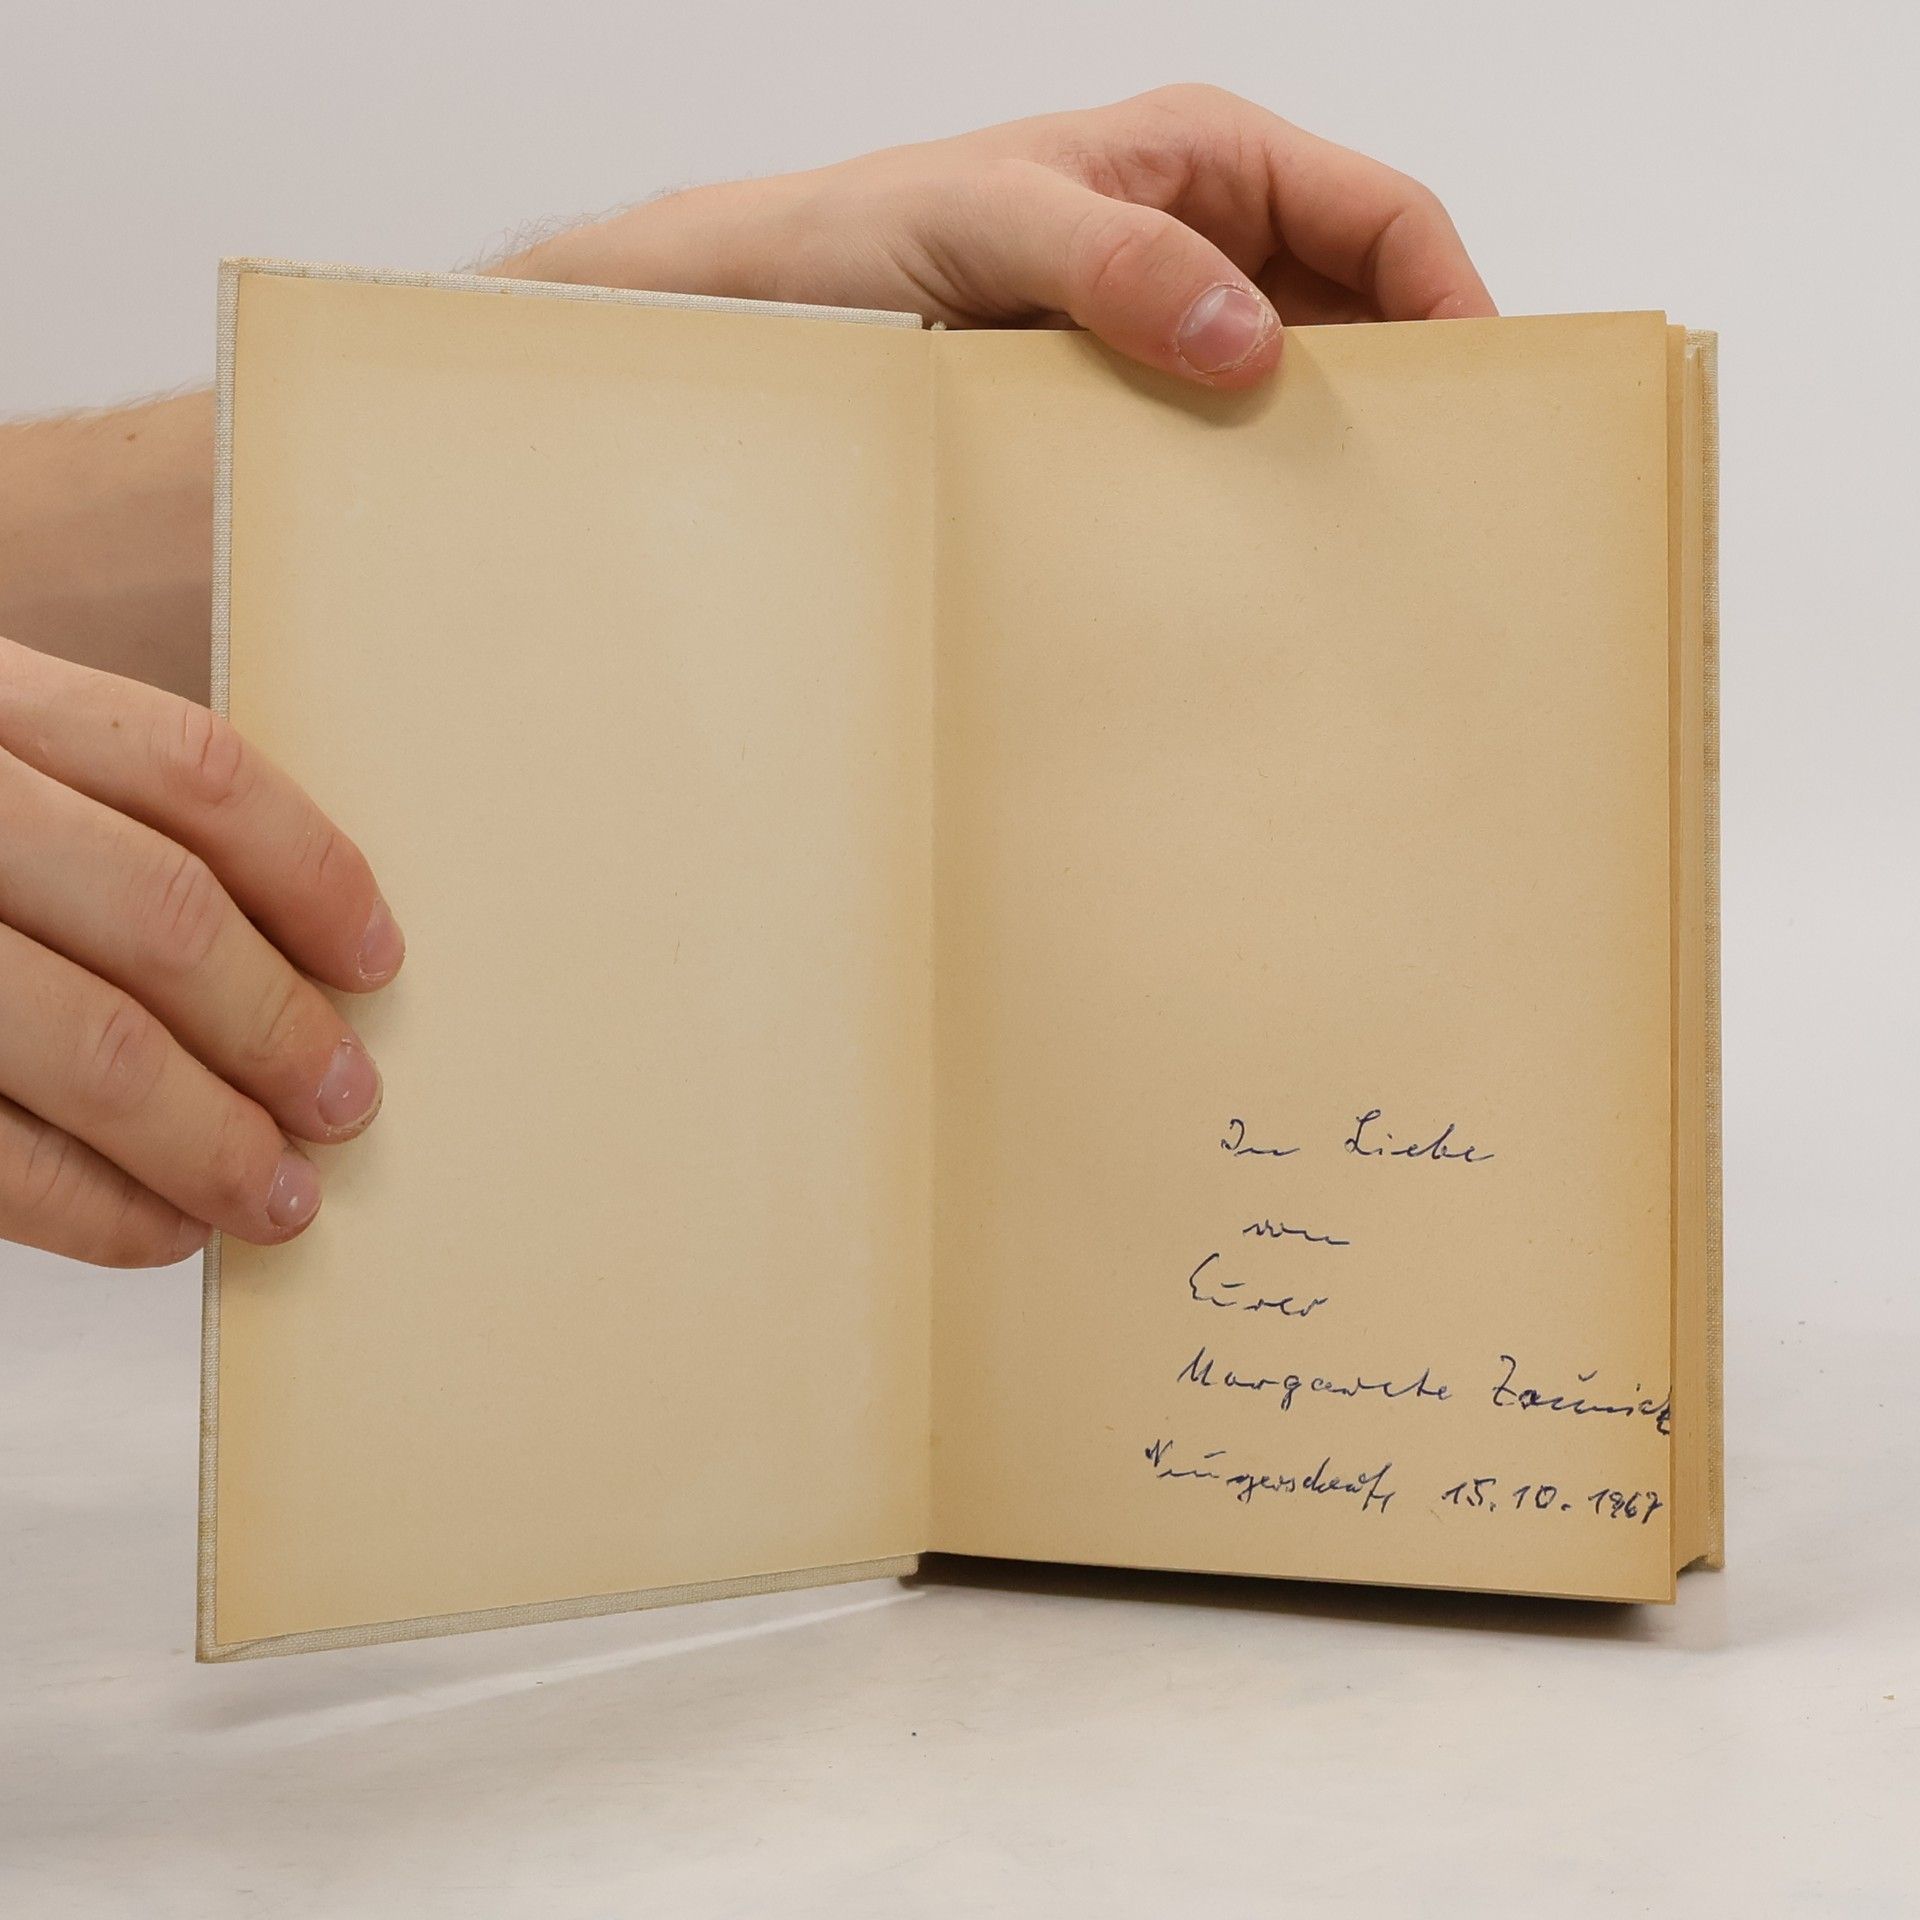 In Liebe
von
Eurer
Margarete Zaunick
Neugersdorf, 15.10.1967